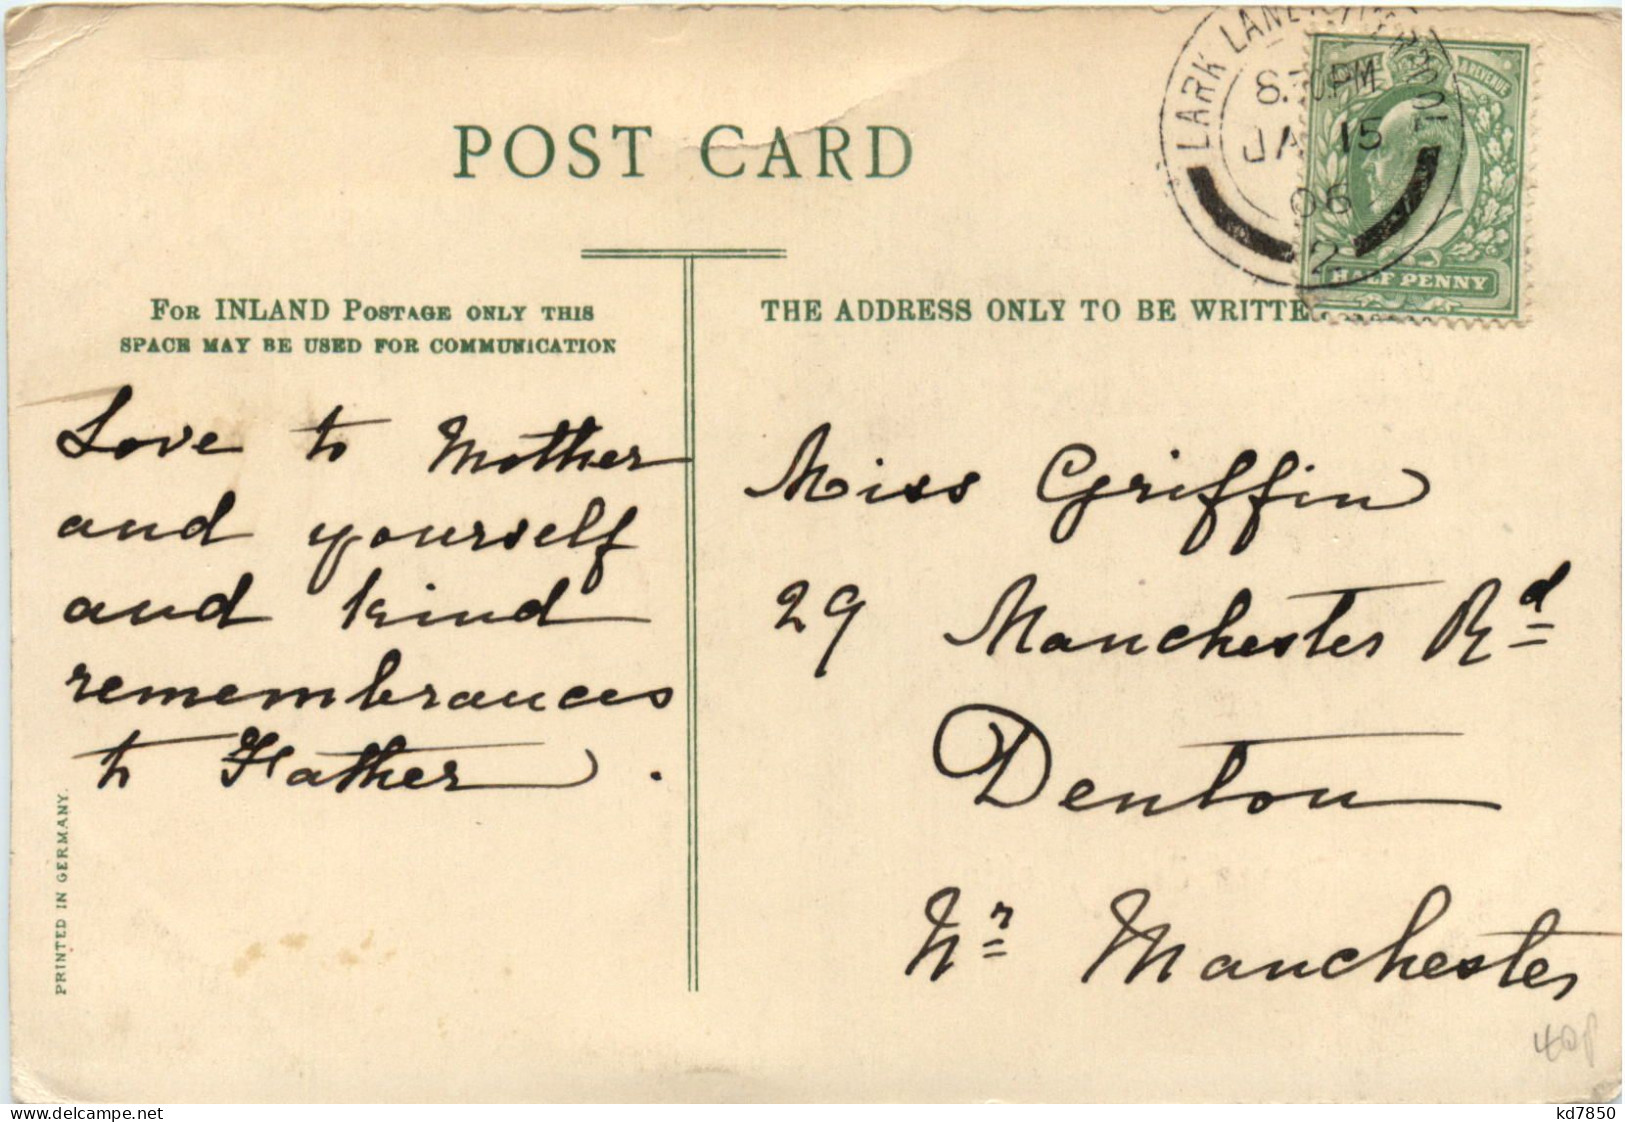 POST CARD
LARK LANE
PM
JA 15
06
2
REVENUE
HALF PENNY
FOR INLAND POSTAGE ONLY THIS
SPACE MAY BE USED FOR COMMUNICATION
THE ADDRESS ONLY TO BE WRITTE
Love to Mother
and yourself
and kind
remembrances
to Father.
Miss Griffin
29 Manchester Rd
Denton
Nr Manchester
PRINTED IN GERMANY.
40p
www.delcampe.net
kd7850